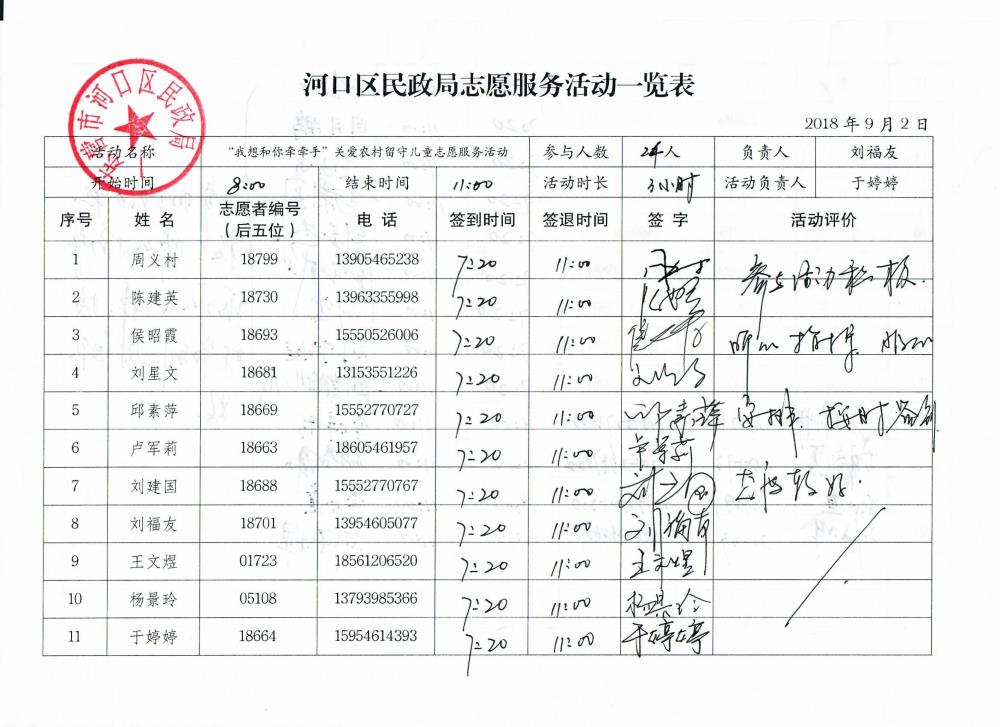 河口区民政局志愿服务活动一览表
河口区民政局
2018年9月2日
活动名称 “我想和你牵牵手”关爱农村留守儿童志愿服务活动 参与人数 24人 负责人 刘福友
开始时间 8:00 结束时间 11:00 活动时长 3小时 活动负责人 于婷婷
序号 姓名 志愿者编号 电话 签到时间 签退时间 签字 活动评价
（后五位）
1 周义村 18799 13905465238 7:20 11:00 参与活动积极.
2 陈建英 18730 13963355998 7:20 11:00
3 侯昭霞 18693 15550526006 7:20 11:00 听从指挥 服从
4 刘星文 18681 13153551226 7:20 11:00
5 邱素萍 18669 15552770727 7:20 11:00 邱素萍 安排. 按时签到
6 卢军莉 18663 18605461957 7:20 11:00 卢军莉
7 刘建国 18688 15552770767 7:20 11:00 态度较好.
8 刘福友 18701 13954605077 7:20 11:00 刘福友
9 王文煜 01723 18561206520 7:20 11:00 王文煜
10 杨景玲 05108 13793985366 7:20 11:00 杨景玲
11 于婷婷 18664 15954614393 7:20 11:00 于婷婷